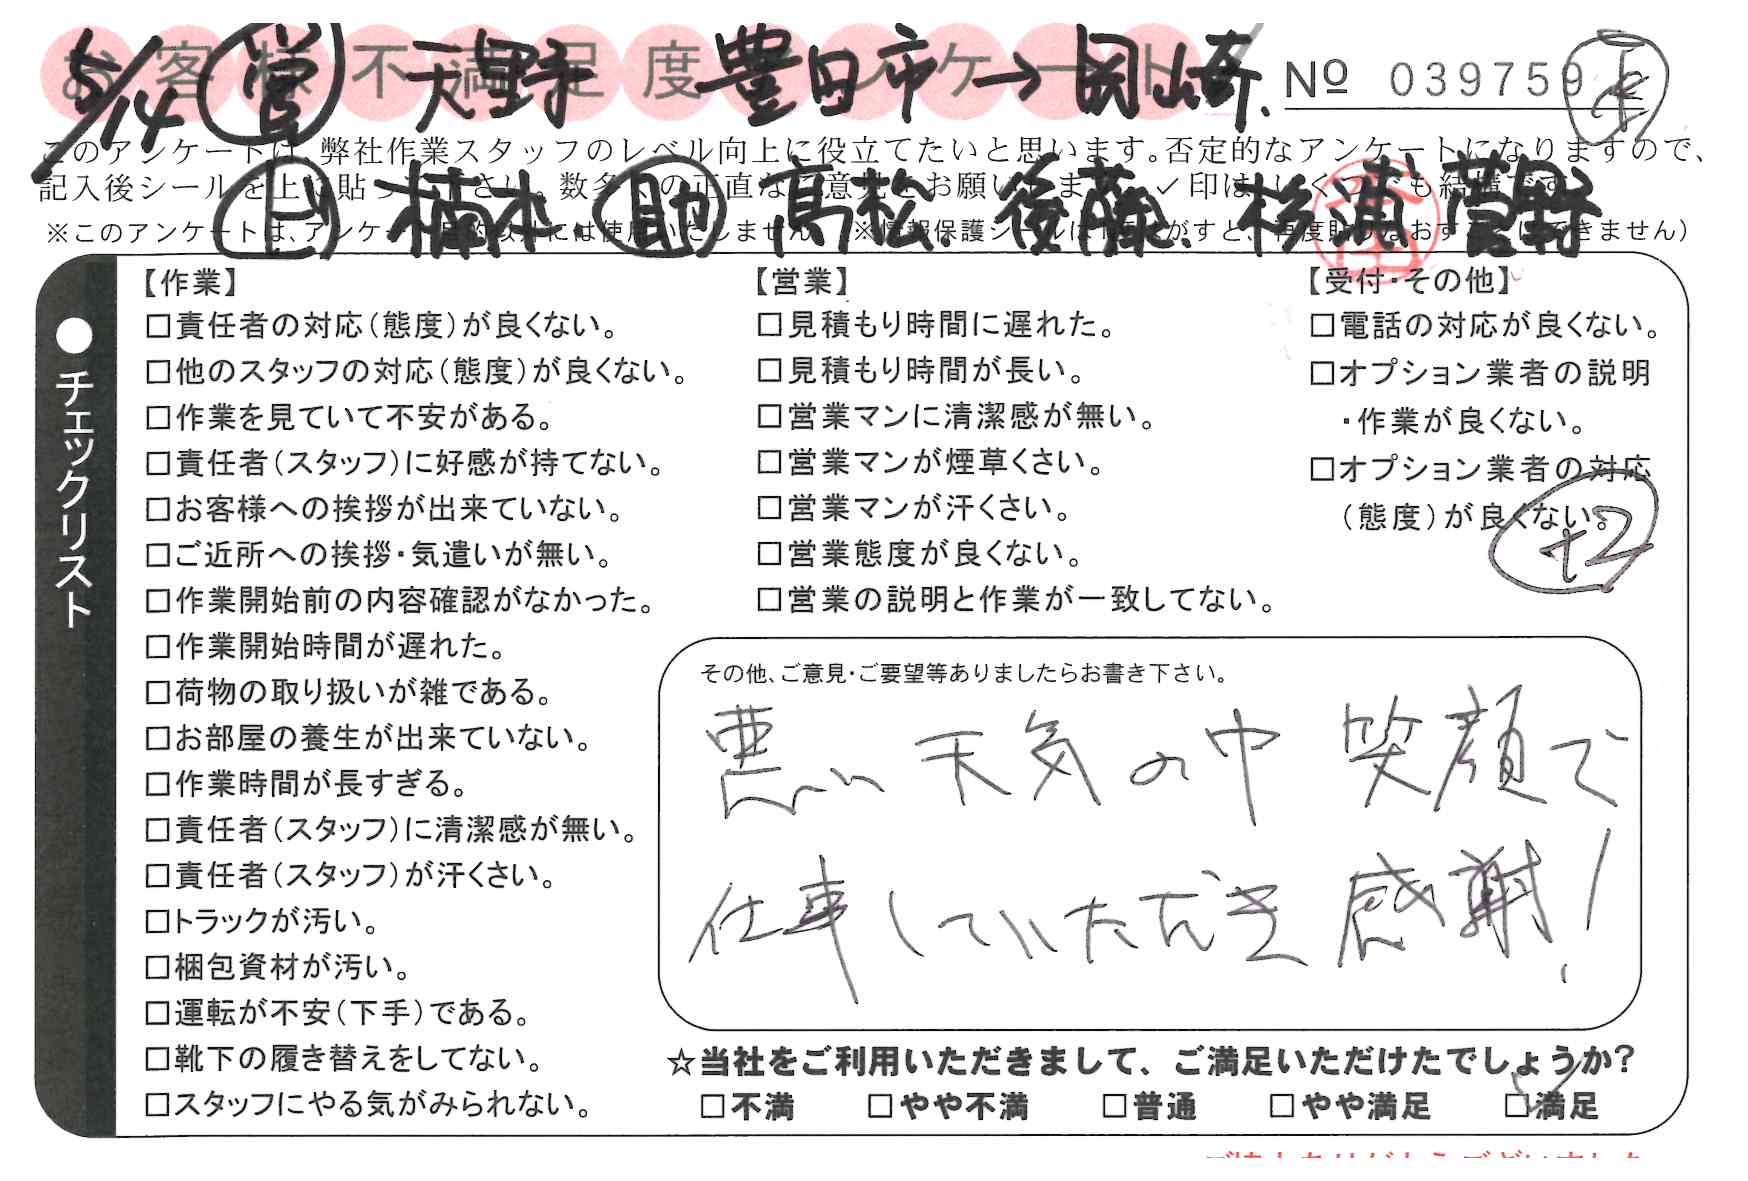 お客様不満足度アンケート
5/14 営 天野 豊田市→岡崎市.
No 039759
このアンケートは、弊社作業スタッフのレベル向上に役立てたいと思います。否定的なアンケートになりますので、
記入後シールを上に貼っ さい。数多くの正直なご意見をお願い します。✓印は、いくつでも結構です
上 楠本 助 高松. 後藤. 杉浦 菅野
※このアンケートは、アンケート目的以外には使用いたしません。(※情報保護シールは1度はがすと、再度貼りなおすことはできません)
●チェックリスト
【作業】
□責任者の対応(態度)が良くない。
□他のスタッフの対応(態度)が良くない。
□作業を見ていて不安がある。
□責任者(スタッフ)に好感が持てない。
□お客様への挨拶が出来ていない。
□ご近所への挨拶・気遣いが無い。
□作業開始前の内容確認がなかった。
□作業開始時間が遅れた。
□荷物の取り扱いが雑である。
□お部屋の養生が出来ていない。
□作業時間が長すぎる。
□責任者(スタッフ)に清潔感が無い。
□責任者(スタッフ)が汗くさい。
□トラックが汚い。
□梱包資材が汚い。
□運転が不安(下手)である。
□靴下の履き替えをしてない。
□スタッフにやる気がみられない。
【営業】
□見積もり時間に遅れた。
□見積もり時間が長い。
□営業マンに清潔感が無い。
□営業マンが煙草くさい。
□営業マンが汗くさい。
□営業態度が良くない。
□営業の説明と作業が一致してない。
【受付・その他】
□電話の対応が良くない。
□オプション業者の説明
・作業が良くない。
□オプション業者の対応
(態度)が良くない。
+2
その他、ご意見・ご要望等ありましたらお書き下さい。
悪い天気の中 笑顔で
仕事していただき感謝!
☆当社をご利用いただきまして、ご満足いただけたでしょうか?
□不満 □やや不満 □普通 □やや満足 ☑満足